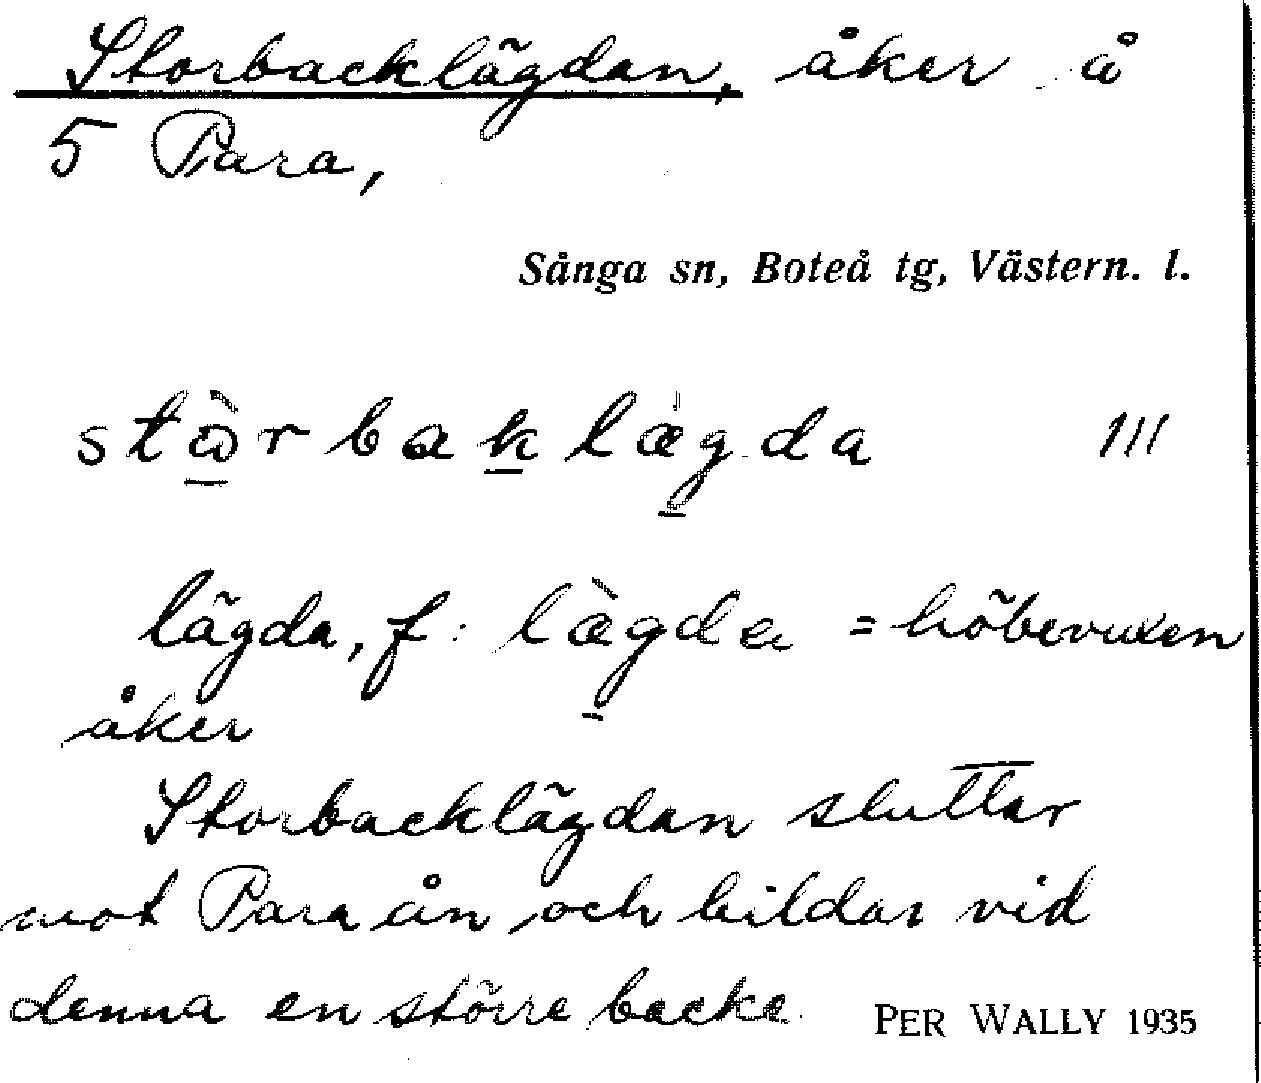 Storbacklägdan, åker å
5 Para,
Sånga sn, Boteå tg, Västern. l.
stɷ̀rbaklæ̀gda III
lägda, f: læ̀gda = höbevuxen
åker
Storbacklägdan sluttar
mot Para ån och bildar vid
denna en större backe.
PER WALLY 1935